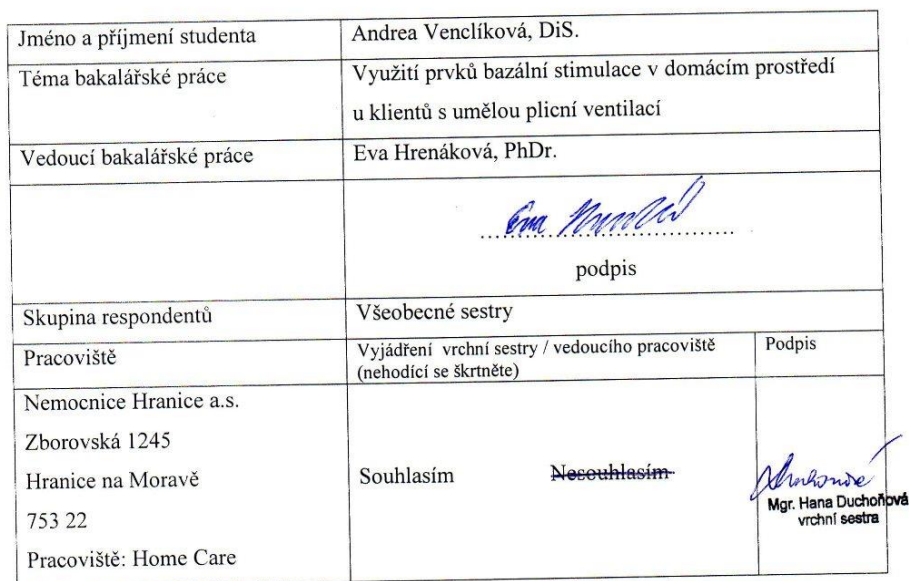 Jméno a příjmení studenta
Andrea Venclíková, DiS.
Téma bakalářské práce
Využití prvků bazální stimulace v domácím prostředí
u klientů s umělou plicní ventilací
Vedoucí bakalářské práce
Eva Hrenáková, PhDr.
podpis
Skupina respondentů
Všeobecné sestry
Pracoviště
Vyjádření vrchní sestry / vedoucího pracoviště
(nehodící se škrtněte)
Podpis
Nemocnice Hranice a.s.
Zborovská 1245
Hranice na Moravě
753 22
Pracoviště: Home Care
Souhlasím
Nesouhlasím
Mgr. Hana Duchoňová
vrchní sestra